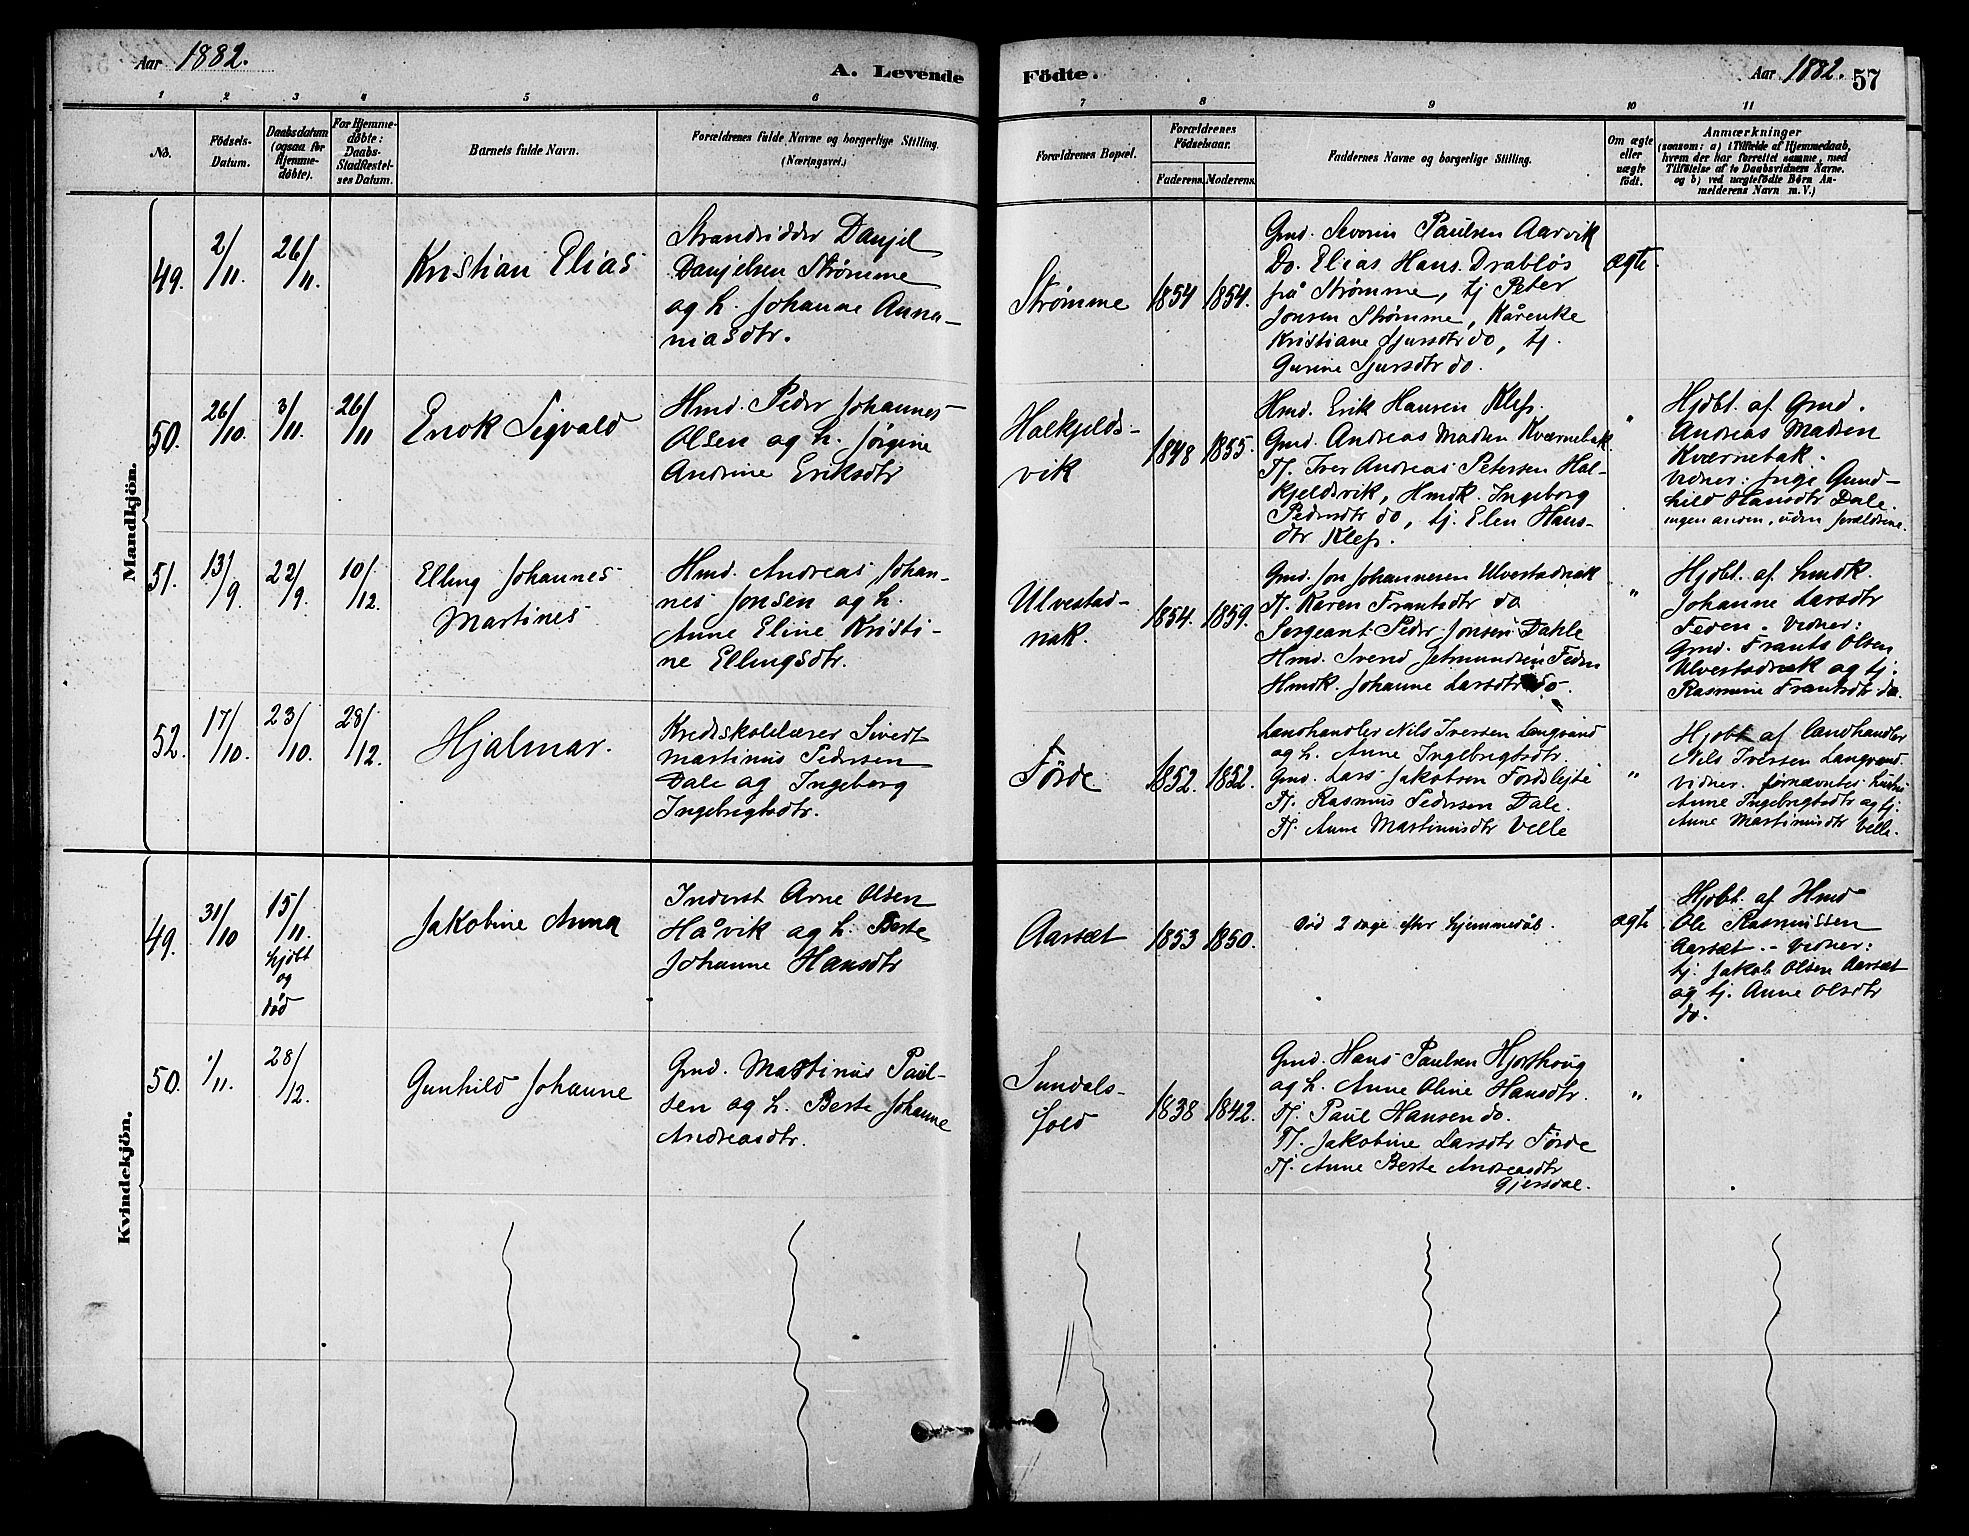 Aar 1882.
A. Levende Födte.
Aar 1882. 57
1 2 3 4 5 6 7 8 9 10 11
No.
Födsels-
Datum.
Daabsdatum
(ogsaa for
Hjemme-
döbte).
For Hjemme-
döbte:
Daabs-
Stadfæstel-
ses Datum.
Barnets fulde Navn.
Forældrenes fulde Navne og borgerlige Stilling.
(Næringsvei.)
Forældrenes Bopæl.
Forældrenes
Födselsaar.
Faderens. Moderens.
Faddernes Navne og borgerlige Stilling.
Om ægte
eller
uægte
födt.
Anmærkninger
(saasom: a) i Tilfælde af Hjemmedaab,
hvem der har forrettet samme, med
Tilföielse af to Daabsvidners Navne.
og b) ved uægtefödte Börn An-
melderens Navn m. V.)
Mandkjön.
49.
2/11.
26/11.
Kristian Elias
Strandsidder Danjel
Danjelsen Strømme
og h. Johanne Anna-
niasdtr.
Strømme
1854
1854.
Gmd. Severin Paulsen Aarvik
Do. Elias Hans. Drabløs
frå Strømme, tj Peter
Jonsen Strømme, Kårenke
Kristiane Sjursdtr do, tj.
Gurine Sjursdtr do.
ægte.
50.
26/10.
3/11.
26/11
Enok Sigvald
Hmd. Peder Johannes-
Olsen og h. Jørgine
Andrine Eriksdtr
Halkjelds-
vik
1848
1855.
Hmd. Erik Hansen Klefs.
Gmd. Andreas Madsen Kværnebak.
Tj. Iver Andreas Petersen Hal-
kjeldsvik, Hmdk. Ingeborg
Pedersdtr do, tj. Elen Hans-
dtr Klefs.
"
Hjdbt. af Gmd.
Andreas Madsen
Kværnebak.
Vidner: Pige Gund-
hild Hansdtr Dale.
ingen anden, uden forældrene.
51.
13/9.
22/9.
10/12.
Elling Johannes
Martines
Hmd. Andreas Johan-
nes Jonsen og h.
Anne Eline Kristi-
ne Ellingsdtr.
Ulvestad-
nak.
1854.
1859.
Gmd. Jon Johannesen Ulvestadnak
Tj. Karen Frantsdtr do
Sergeant Peder Jonsen Dahle
Hmd. Svend Jetmundsen Feden
Hmdk. Johanne Larsdtr do.
"
Hjdbt. af hmdk.
Johanne Larsdtr
Feden. Vidner:
Gmd. Frants Olsen
Ulvestadnak og tj.
Rasmine Frantsdtr do.
52.
17/10.
23/10.
28/12.
Hjalmar.
Kredsskolelærer Sivert
Martinus Pedersen
Dale og Ingeborg
Ingebrigtsdtr.
Förde
1852.
1852.
Landhandler Nils Iversen Langvand
og h. Anne Ingebrigtsdtr.
Gmd. Lars Jakobsen
Tj. Rasmus Pedersen Dale.
Tj. Anne Martinusdtr Velle
"
Hjdbt af landhandler
Nils Iversen Langvand.
Vidner. fornævntes hustru
Anne Ingebrigtsdtr og tj.
Anne Martinusdtr Velle.
Kvindekjön.
49.
31/10
15/11.
hjdbt
og
død
Jakobine Anna
Inderst Arne Olsen
Håvik og h. Berte
Johanne Hansdtr
Aarsæt
1853
1850.
Død 2 dage efter hjemmedåb.
ægte
Hjdbt. af Hmd
Ole Rasmussen
Aarsæt. - Vidner:
tj. Jakob Olsen Aarsæt
og tj. Anne Olsdtr
do.
50.
1/11.
28/12.
Gunhild Johanne
Gmd. Martinus Paul-
sen og h. Berte Johanne
Andreasdtr.
Sundals-
fold
1838
1842.
Gmd. Hans Paulsen Hjorthoug
og h. Anne Oline Hansdtr.
Tj. Paul Hansen do.
Tj. Jakobine Larsdtr Förde
Tj. Anne Berte Andreasdtr
Gjersdal.
"